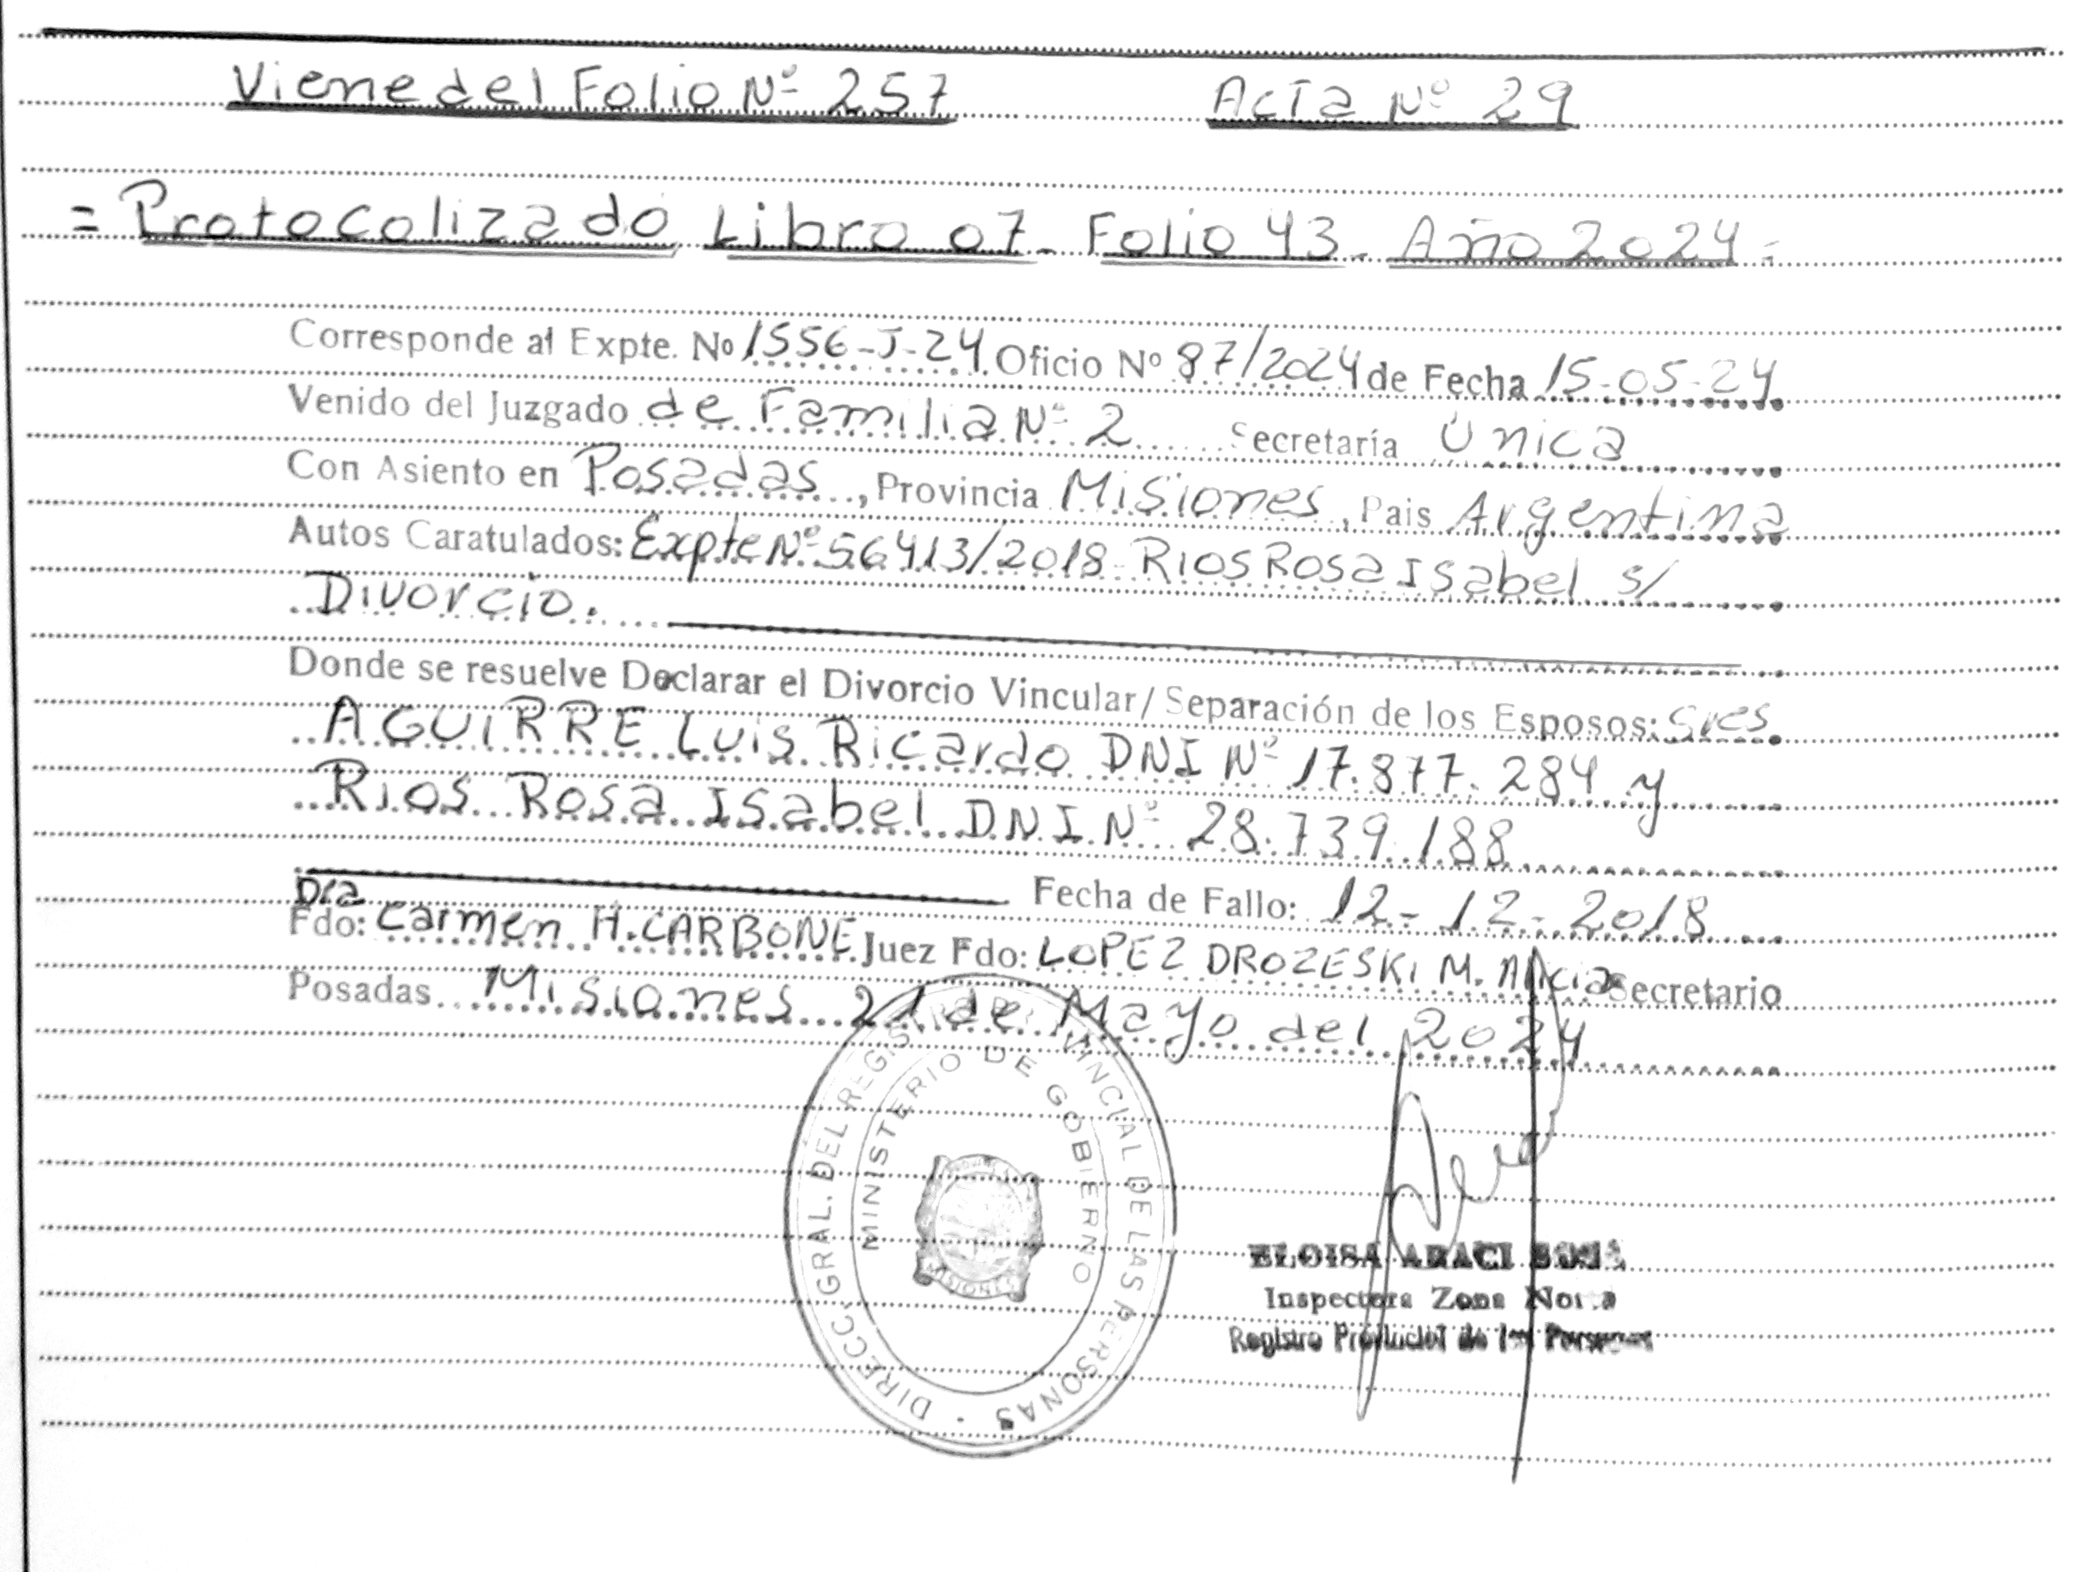 Viene del Folio Nº 257 Acta Nº 29
= Protocolizado Libro 07- Folio 43- Año 2024-
Corresponde al Expte. No 1556-J-24 Oficio Nº 87/2024 de Fecha 15-05-24
Venido del Juzgado de Familia Nº 2 Secretaría Única
Con Asiento en Posadas, Provincia Misiones, Pais Argentina
Autos Caratulados: Expte Nº 56413/2018 Rios Rosa Isabel s/
Divorcio.
Donde se resuelve Declarar el Divorcio Vincular/ Separación de los Esposos: Sres.
AGUIRRE Luis Ricardo DNI Nº 17.877.284 y
Rios Rosa Isabel DNI Nº 28.739.188
Fecha de Fallo: 12-12-2018
Dra
Fdo: Carmen H. CARBONE Juez Fdo: LOPEZ DROZESKI M. Alicia Secretario
Posadas Misiones 21 de Mayo del 2024
DIRECC. GRAL. DEL REGISTRO PROVINCIAL DE LAS PERSONAS
MINISTERIO DE GOBIERNO
MISIONES
ELOISA ARACI
Inspectora Zona
Registro Provincial de las Personas